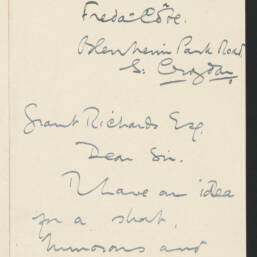 Freda Cöte.
Blenheim Park Road
S. Croydon,
Grant Richards Esq.
Dear Sir.
I have an idea
for a short,
humorous and